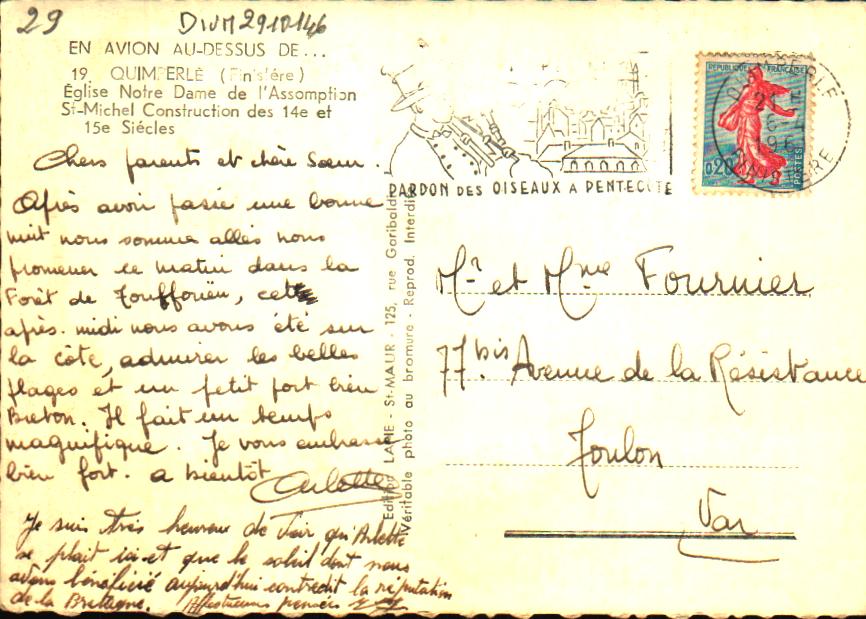 29
DIVM2910146
EN AVION AU-DESSUS DE...
19 QUIMPERLÉ (Finis'ère)
Église Notre Dame de l'Assomption
St-Michel Construction des 14e et
15e Siécles
Chers parents et chère Sœur.
Après avoir passé une bonne
nuit nous somme allés nous
promener ce matin dans la
Forêt de Toulfouën, cette
après-midi nous avons été sur
la côte, admirer les belles
plages et un petit port bien
Breton. Il fait un temps
magnifique. Je vous embrasse
bien fort. a bientôt
Arlette
Je suis très heureux de voir qu'Arlette
se plait ici et que le soleil dont nous
avons bénéficié aujourd'hui contredit la réputation
de la Bretagne. Affectueuses pensées
Edition LAPIE - St-MAUR - 125, rue Garibaldi
Véritable photo au bromure - Reprod. Interdite
PARDON DES OISEAUX A PENTECOTE
REPUBLIQUE FRANÇAISE
0,20
POSTES
QUIMPERLE
FINISTERE
Mr et Mme Fournier
77 bis Avenue de la Résistance
Toulon
Var